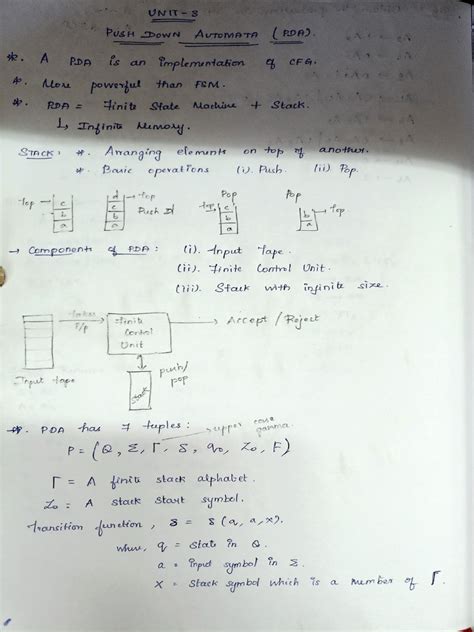 UNIT-3
PUSH DOWN AUTOMATA (PDA).
*. A PDA is an implementation of CFG.
*. More powerful than FSM.
*. PDA = Finite State Machine + Stack.
↳ Infinite Memory.
STACK: *. Arranging elements on top of another.
*. Basic operations (i). Push. (ii) Pop.
Top → c b a
d c b a → top Push d
Pop top c b a
Pop b a → Top.
→ Components of PDA: (i). Input Tape.
(ii). Finite Control Unit.
(iii). Stack with infinite size.
Takes I/p
Finite Control Unit
→ Accept / Reject
Input tape
push/ pop
Stack
*. PDA has 7 tuples: upper case gamma.
P = (Q, Σ, Γ, δ, q₀, Z₀, F)
Γ = A finite stack alphabet.
Z₀ = A stack start symbol.
Transition function, δ = δ(q, a, x).
where, q = State in Q.
a = input symbol in Σ.
X = Stack symbol which is a member of Γ.